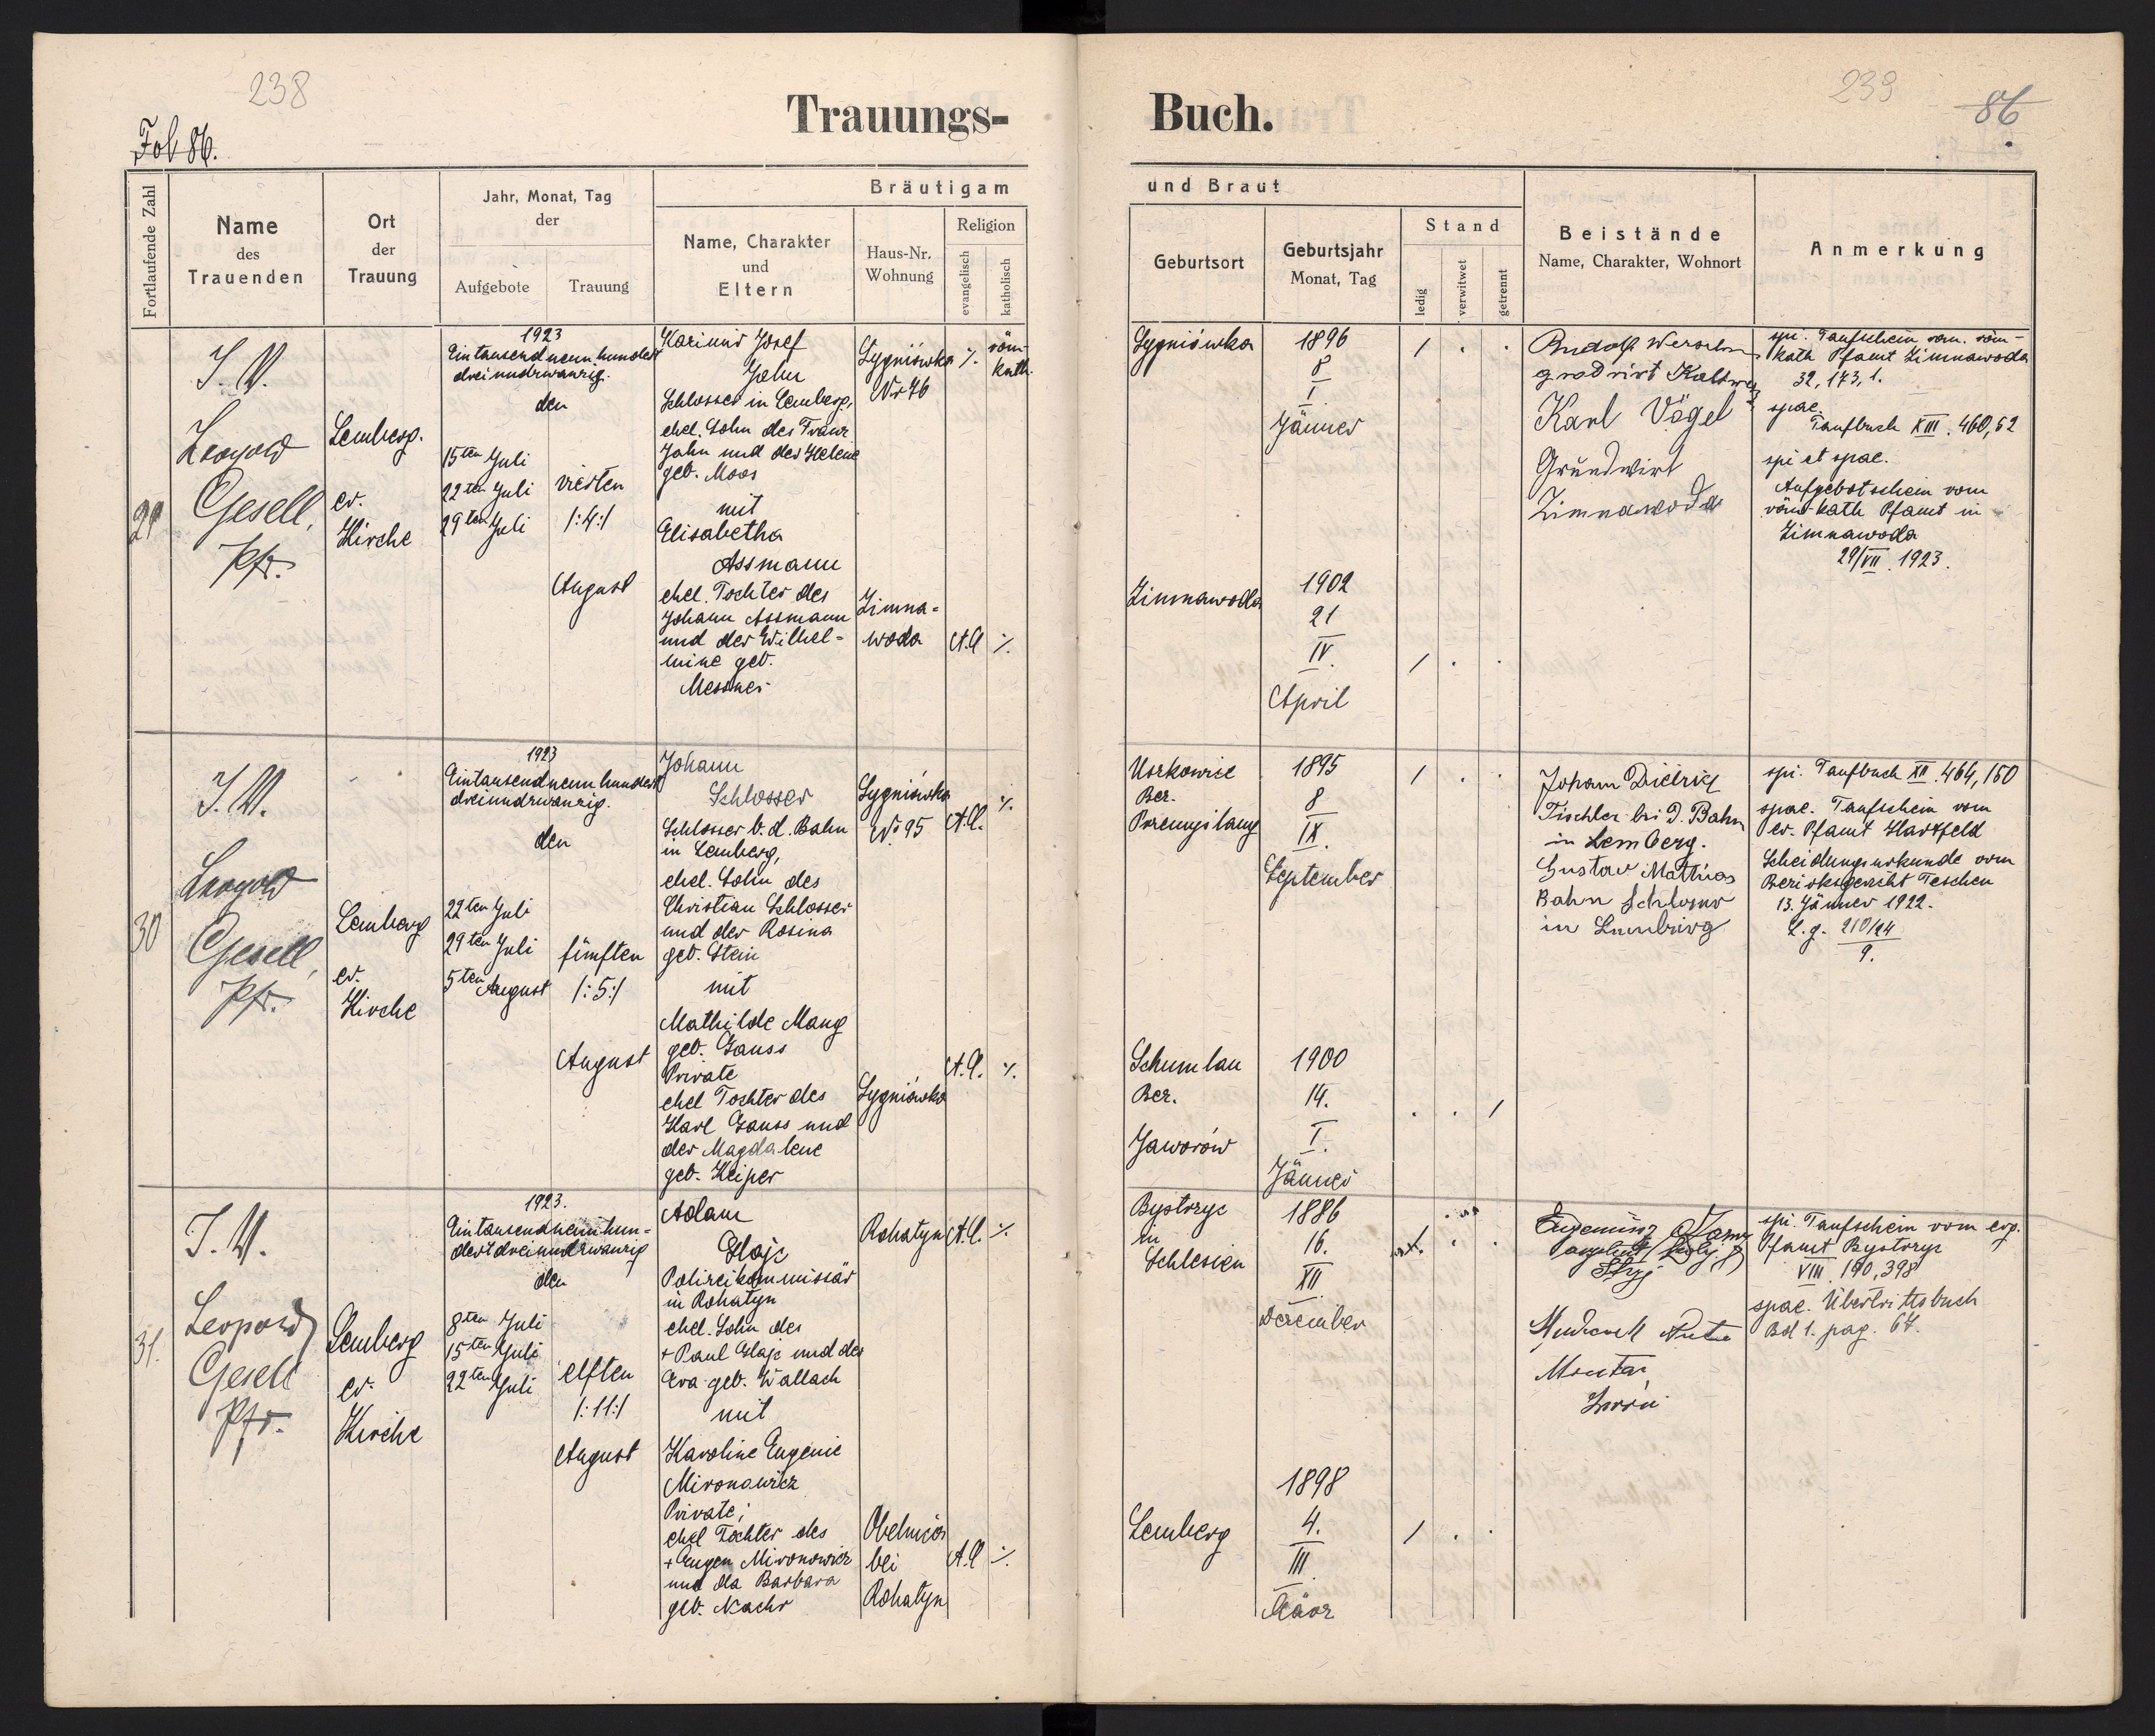 238
239
86
Fol 86.
Trauungs-
Buch.
Fortlaufende Zahl
Name
des
Trauenden
Ort
der
Trauung
Jahr, Monat, Tag
der
Aufgebote
Trauung
Bräutigam
Name, Charakter
und
Eltern
Haus-Nr.
Wohnung
Religion
evangelisch
katholisch
und Braut
Geburtsort
Geburtsjahr
Monat, Tag
Stand
ledig
verwitwet
getrennt
Beistände
Name, Charakter, Wohnort
Anmerkung
29
J. W.
Leopold
Gesell,
Pfr.
Lemberg.
ev.
Kirche
1923
Eintausendneunhundert
dreiundzwanzig.
den
15ten Juli
22ten Juli
29ten Juli
vierten
/:4:/
August
Kazimir Josef
Jahn
Schlosser in Lemberg,
ehel. Sohn des Franz
Jahn und der Helene
geb. Moos
mit
Elisabetha
Assmann
ehel. Tochter des
Johann Assmann
und der Wilhel=
mine geb.
Messner
Sygniówka
Nr 46
Zimna=
woda
röm-
kath.
A.C.
Sygniówka
1896
8
I.
Jänner
/
Zimnawoda
1902
21
IV.
April
/
Rudolf
Karl Vögel
Grundwirt
Zimnawoda
spi. Taufschein vom röm-
kath Pfamt Zimnawoda
32, 173, 1.
spae.
Taufbuch XIII. 460, 52
spi et spae.
Aufgebotschein vom
röm-kath Pfamt in
Zimnawoda
29/VII. 1923.
30
J. W.
Leopold
Gesell,
Pfr.
Lemberg
ev.
Kirche
1923
Eintausendneunhundert
dreiundzwanzig.
den
22ten Juli
29ten Juli
5ten August
fünften
/:5:/
August
Johann
Schlosser
Schlosser b. d. Bahn
in Lemberg,
ehel. Sohn des
Christian Schlosser
und der Rosina
geb. Stein
mit
Mathilde Mang
geb. Gauss
Private
ehel Tochter des
Karl Gauss und
der Magdalene
geb. Keiper
Sygniówka
Nr 95
A.C.
Sygniówka
A.C.
Uszkowice
Bez.
1895
8
IX.
September
/
Schumlau
Bez.
Jaworów
1900
14.
I.
Jänner
/
Johann Dietrich
Tischler bei d. Bahn
in Lemberg.
Gustav Mathias
Bahn Schlosser
in Lemberg
spi. Taufbuch XII. 464, 150
spae. Taufschein vom
ev. Pfamt Hartfeld
Scheidungsurkunde vom
Bezirksgericht Teschen
13. Jänner 1922.
9.
31.
J. W.
Leopold
Gesell
Pfr.
Lemberg
ev.
Kirche
1923.
Eintausendneunhun=
dertdreiundzwanzig
den
8ten Juli
15ten Juli
22ten Juli
elften
/:11:/
August
Adam
Glajc
Polizeikommissär
in Rohatyn
ehel. Sohn des
+ Paul Glajc und der
Eva geb. Wallach
mit
Karoline Eugenie
Mironowicz
Private;
ehel Tochter des
+ Eugen Mironowicz
und der Barbara
geb. Nachr
Rohatyn
A.C.
bei
Rohatyn
A.C.
Bystrzyc
in
Schlesien
1886
16.
XII.
Dezember
Lemberg
1898
4.
III.
März
/
spi. Taufschein vom evg.
Pfamt Bystrzyc
VIII. 190, 398
spae. Übertrittsbuch
Bd 1. pag. 67.